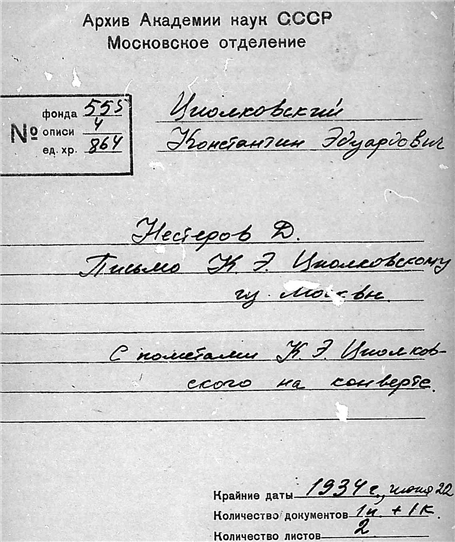 Архив Академии наук СССР
Московское отделение
№
фонда 555
описи 4
ед. хр. 864
Циолковский
Константин Эдуардович
Нестеров Д.
Письмо К. Э. Циолковскому
из Москвы
С пометами К. Э. Циолков-
ского на конверте.
Крайние даты 1934 г., июня 22
Количество документов 1п + 1к.
Количество листов 2